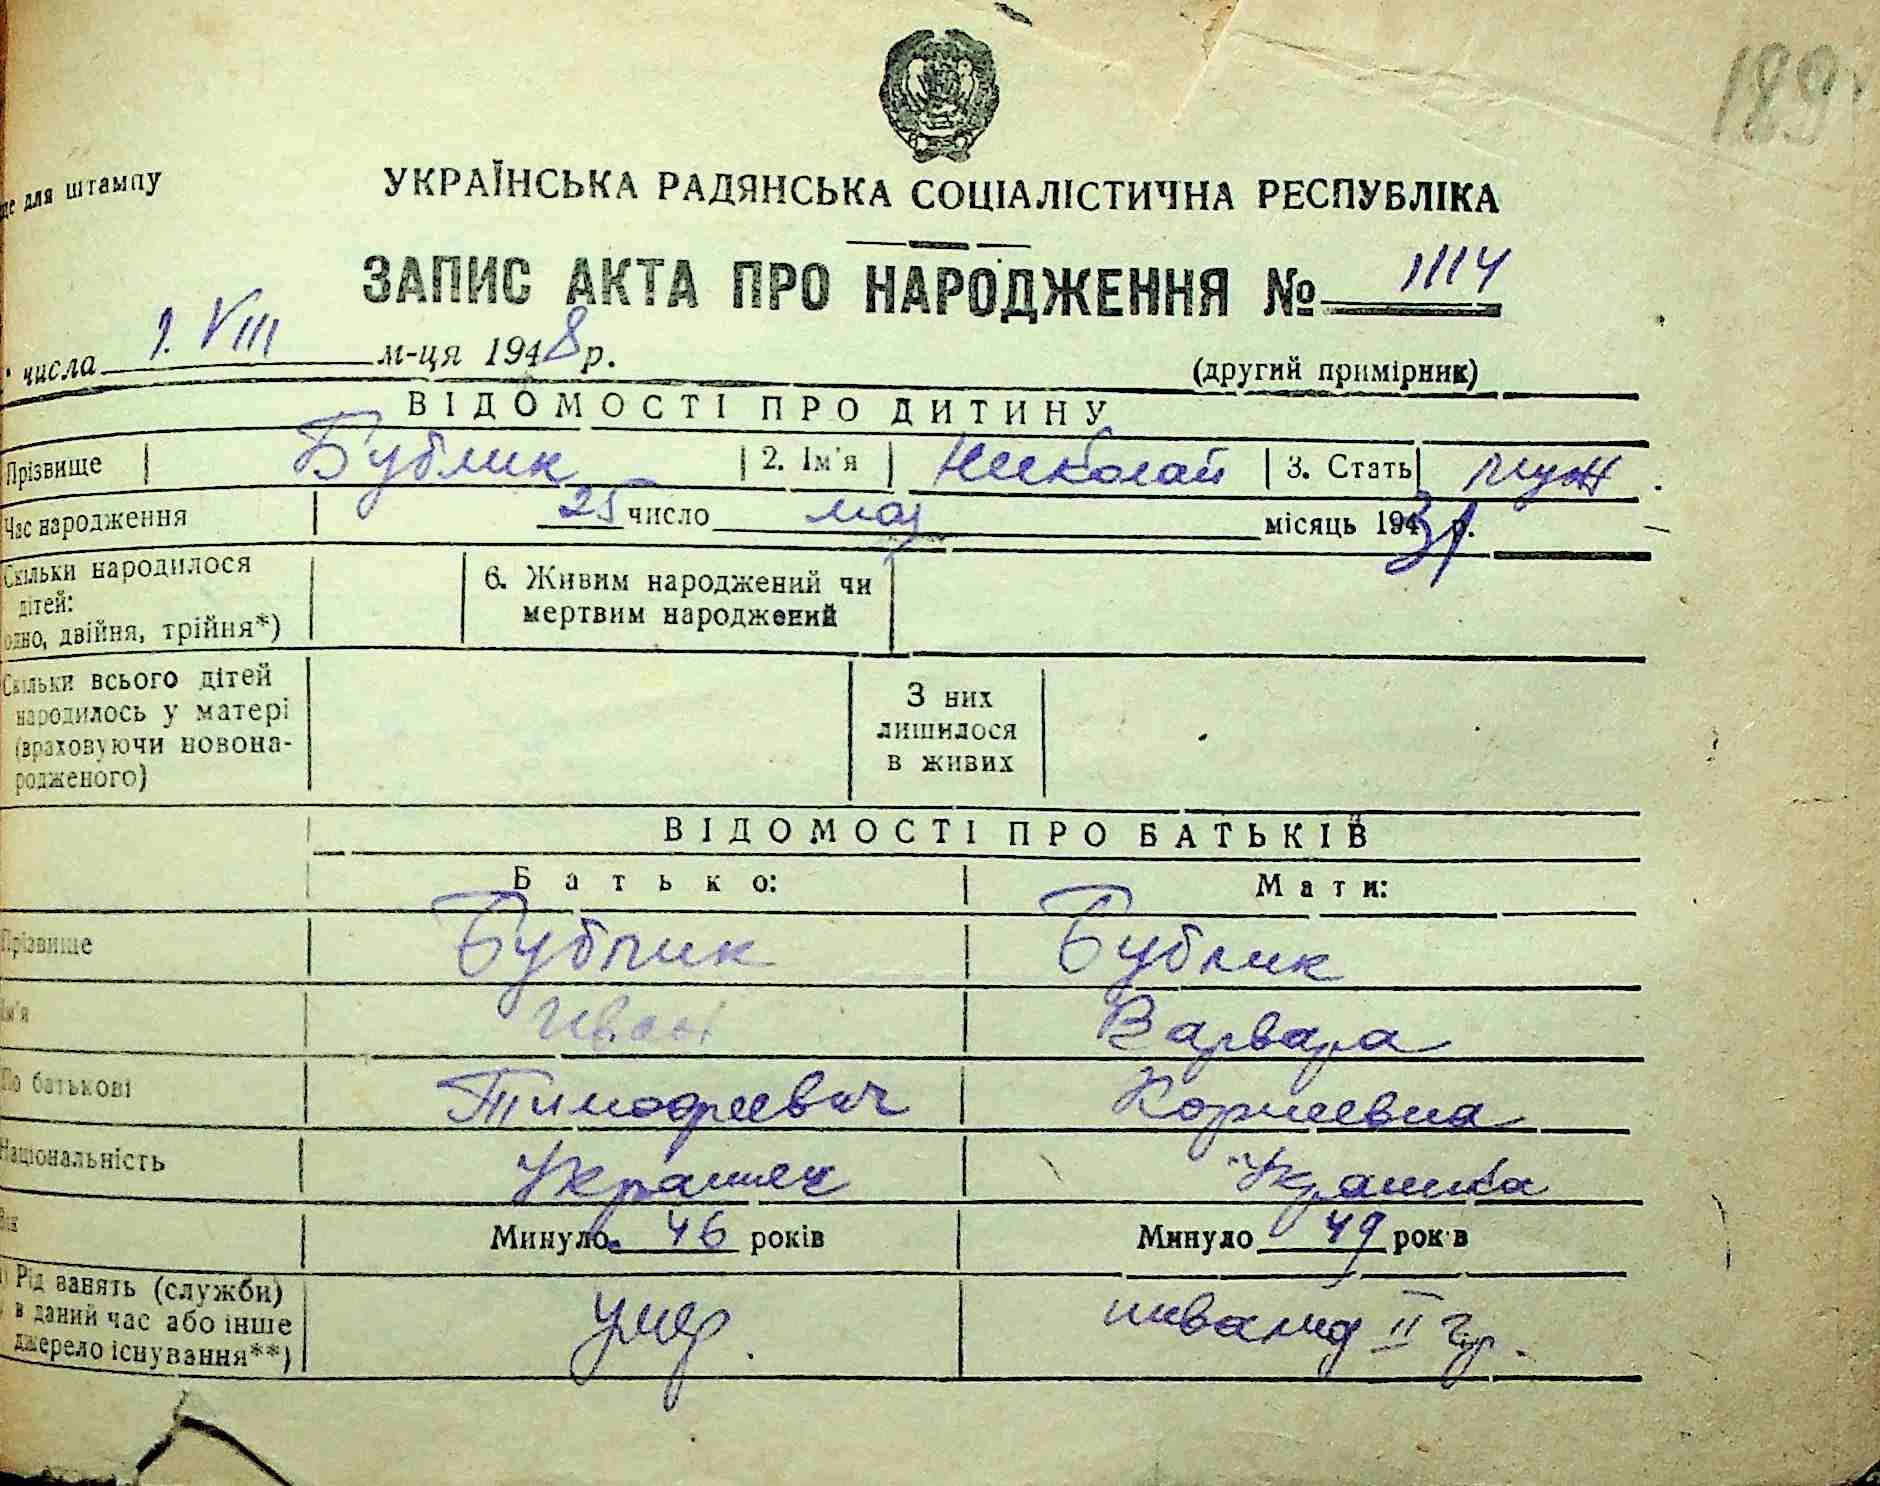 189
для штампу
УКРАЇНСЬКА РАДЯНСЬКА СОЦІАЛІСТИЧНА РЕСПУБЛІКА
ЗАПИС АКТА ПРО НАРОДЖЕННЯ № 1114
числа 1. VIII м-ця 1948 р.
(другий примірник)
ВІДОМОСТІ ПРО ДИТИНУ
Прізвище Бублик 2. Ім'я Николай 3. Стать муж.
Час народження 25 число мая місяць 1931 р.
Скільки народилося дітей: одно, двійня, трійня*)
6. Живим народжений чи мертвим народжений
Скільки всього дітей народилось у матері (враховуючи новонародженого)
З них лишилося в живих
ВІДОМОСТІ ПРО БАТЬКІВ
Батько: Мати:
Прізвище Бублик Бублик
Ім'я Иван Варвара
По батькові Тимофеевич Корнеевна
Національність Украинец Украинка
Вік Минуло 46 років Минуло 49 років
Рід занять (служби) в даний час або інше джерело існування**) умер. инвалид II гр.